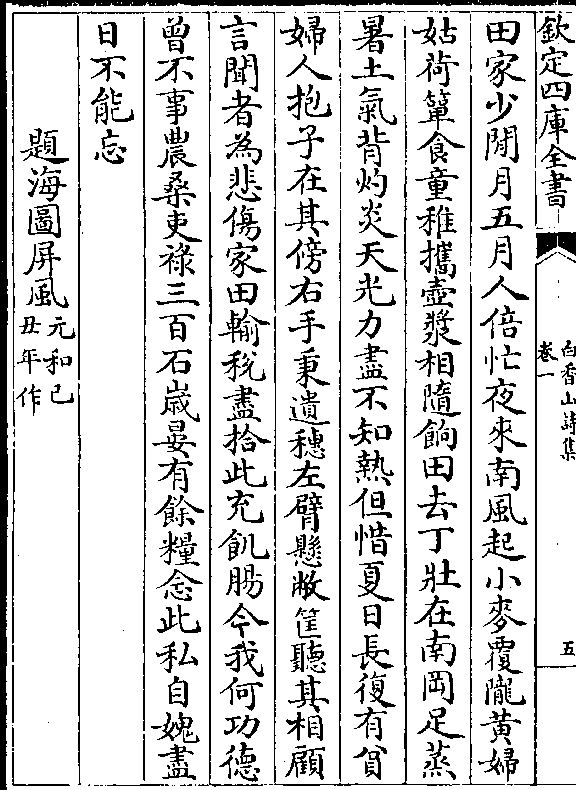 欽定四庫全書
白香山詩集
卷一
五
田家少閒月五月人倍忙夜來南風起小麥覆隴黃婦
姑荷簞食童稚攜壺漿相隨餉田去丁壯在南岡足蒸
暑土氣背灼炎天光力盡不知熱但惜夏日長復有貧
婦人抱子在其傍右手秉遺穗左臂懸敝筐聽其相顧
言聞者為悲傷家田輸稅盡拾此充飢腸今我何功德
曾不事農桑吏祿三百石歲晏有餘糧念此私自媿盡
日不能忘
題海圖屏風元和己丑年作